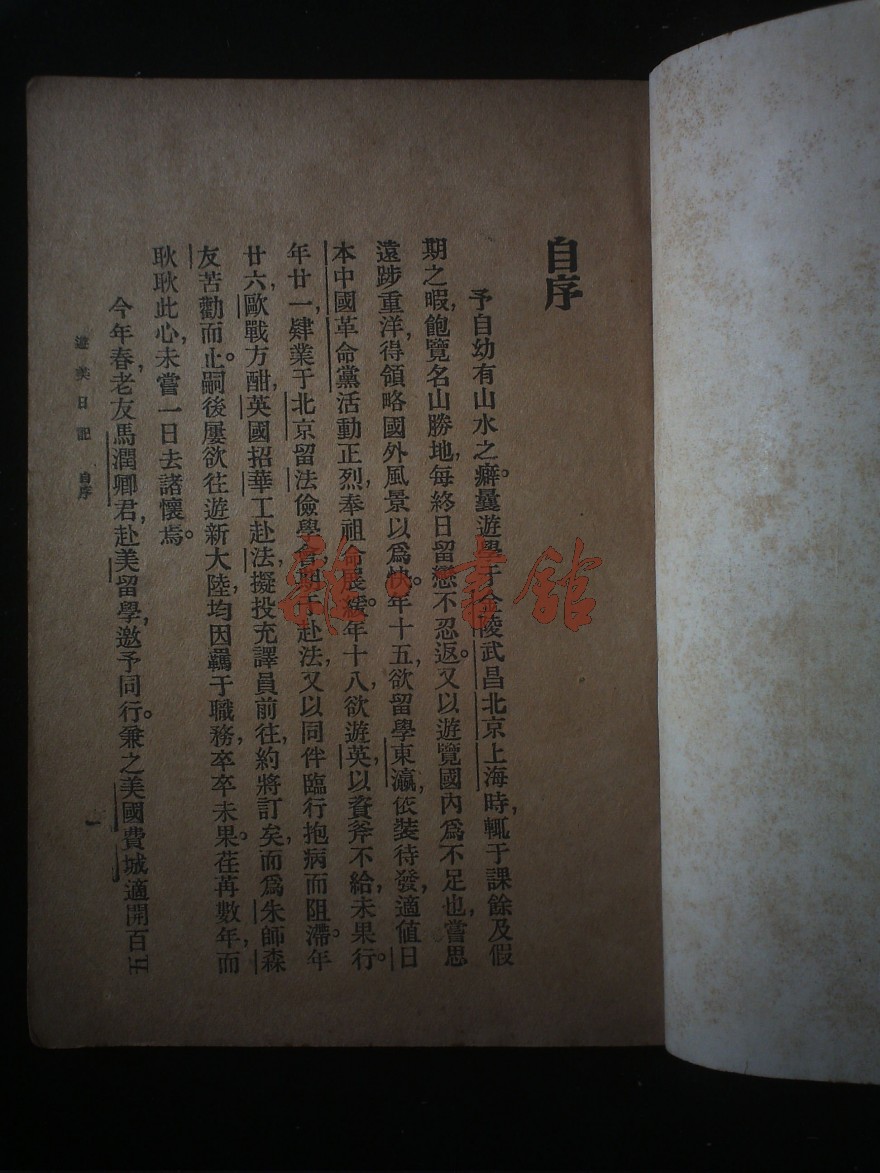 自序
予自幼有山水之癖。曩遊學于金陵武昌北京上海時，輒于課餘及假
期之暇，飽覽名山勝地，每終日留戀不忍返。又以遊覽國內爲不足也，嘗思
遠踄重洋，得領略國外風景以爲快。年十五，欲留學東瀛，依裝待發，適值日
本中國革命黨活動正烈，奉祖命展緩。年十八，欲遊英，以資斧不給，未果行。
年廿一，肄業于北京留法儉學會，期于赴法，又以同伴臨行抱病而阻滯。年
廿六，歐戰方酣，英國招華工赴法，擬投充譯員前往，約將訂矣，而爲朱師森
友苦勸而止。嗣後屢欲往遊新大陸，均因羈于職務，卒卒未果。荏苒數年，而
耿耿此心，未嘗一日去諸懷焉。
今年春，老友馬潤卿君，赴美留學，邀予同行。兼之美國費城適開百五
遊美日記 自序 一
雜·書館